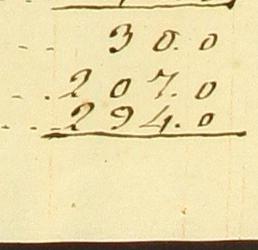 30.0
207.0
294.0